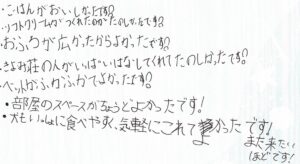 ・ごはんがおいしかったです!!
・ソフトクリームがつくれたのがたのしかったです!!
・おふろが広かったからよかったです!!
・きよみ荘の人がいっぱいはなしてくれてたのしかったです!!
・ベットがふかふかでよかったです!!
・部屋のスペースがちょうどよかったです!
・犬もいっしょに食べやすく、気軽にこれて良かったです!
また来たい
ほどです!